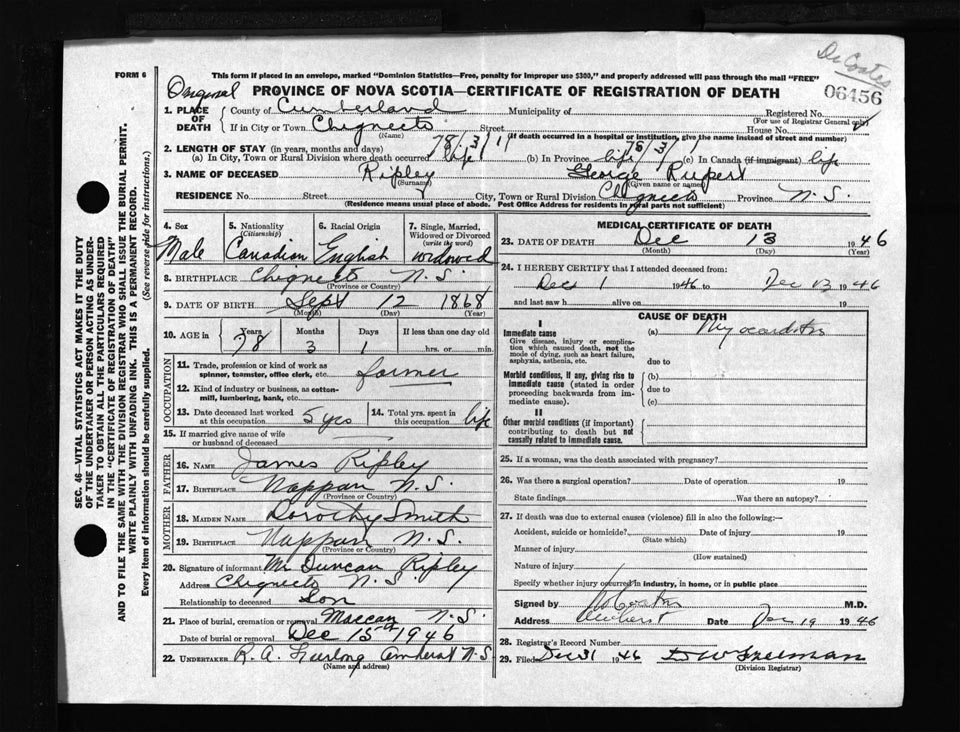 Dr Coates
FORM 6
This form if placed in an envelope, marked "Dominion Statistics—Free, penalty for improper use $300," and properly addressed will pass through the mail "FREE"
Original
06456
PROVINCE OF NOVA SCOTIA—CERTIFICATE OF REGISTRATION OF DEATH
1. PLACE OF DEATH { County of Cumberland Municipality of Registered No.
(For use of Registrar General only)
If in City or Town Chignecto Street House No.
(Name) (If death occurred in a hospital or institution, give the name instead of street and number)
2. LENGTH OF STAY (in years, months and days) 78/3/1
(a) In City, Town or Rural Division where death occurred life (b) In Province life 78/3/1 (c) In Canada (if immigrant) life
3. NAME OF DECEASED Ripley George Rupert
(Surname) (Given name or names)
RESIDENCE No. Street City, Town or Rural Division Chignecto Province N.S.
(Residence means usual place of abode. Post Office Address for residents in rural parts not sufficient)
4. Sex 5. Nationality (Citizenship) 6. Racial Origin 7. Single, Married, Widowed or Divorced (write the word)
Male Canadian English widowed
8. BIRTHPLACE Chignecto N.S.
(Province or Country)
9. DATE OF BIRTH Sept 12 1868
(Month) (Day) (Year)
10. AGE in Years Months Days If less than one day old
78 3 1 hrs. or min.
OCCUPATION
11. Trade, profession or kind of work as spinner, teamster, office clerk, etc. farmer
12. Kind of industry or business, as cotton-mill, lumbering, bank, etc.
13. Date deceased last worked at this occupation 5 yrs 14. Total yrs. spent in this occupation life
15. If married give name of wife or husband of deceased
FATHER
16. NAME James Ripley
17. BIRTHPLACE Nappan N.S.
(Province or Country)
MOTHER
18. MAIDEN NAME Dorothy Smith
19. BIRTHPLACE Nappan N.S.
(Province or Country)
20. Signature of informant Mr Duncan Ripley
Address Chignecto N.S.
Relationship to deceased Son
21. Place of burial, cremation or removal Maccan N.S.
Date of burial or removal Dec 15th 1946
22. UNDERTAKER R. A. Furlong Amherst N.S.
(Name and address)
MEDICAL CERTIFICATE OF DEATH
23. DATE OF DEATH Dec 13 1946
(Month) (Day) (Year)
24. I HEREBY CERTIFY that I attended deceased from:
Dec 1 1946 to Dec 13 1946
and last saw h alive on 19
CAUSE OF DEATH
I
Immediate cause (a) Myocarditis
Give disease, injury or complication which caused death, not the mode of dying, such as heart failure, asphyxia, asthenia, etc.
due to
Morbid conditions, if any, giving rise to immediate cause (stated in order proceeding backwards from immediate cause).
(b)
due to
(c)
II
Other morbid conditions (if important) contributing to death but not causally related to immediate cause.
25. If a woman, was the death associated with pregnancy?
26. Was there a surgical operation? Date of operation 19
State findings Was there an autopsy?
27. If death was due to external causes (violence) fill in also the following:—
Accident, suicide or homicide? Date of injury 19
(State which)
Manner of injury
(How sustained)
Nature of injury
Specify whether injury occurred in industry, in home, or in public place
Signed by Coates M.D.
Address Amherst Date Dec 19 1946
28. Registrar's Record Number
29. Filed Dec 31 1946 D W Freeman
(Division Registrar)
SEC. 46—VITAL STATISTICS ACT MAKES IT THE DUTY
OF THE UNDERTAKER OR PERSON ACTING AS UNDER-
TAKER TO OBTAIN ALL THE PARTICULARS REQUIRED
IN THE "CERTIFICATE OF REGISTRATION OF DEATH"
AND TO FILE THE SAME WITH THE DIVISION REGISTRAR WHO SHALL ISSUE THE BURIAL PERMIT.
WRITE PLAINLY WITH UNFADING INK. THIS IS A PERMANENT RECORD.
Every item of information should be carefully supplied. (See reverse side for instructions.)